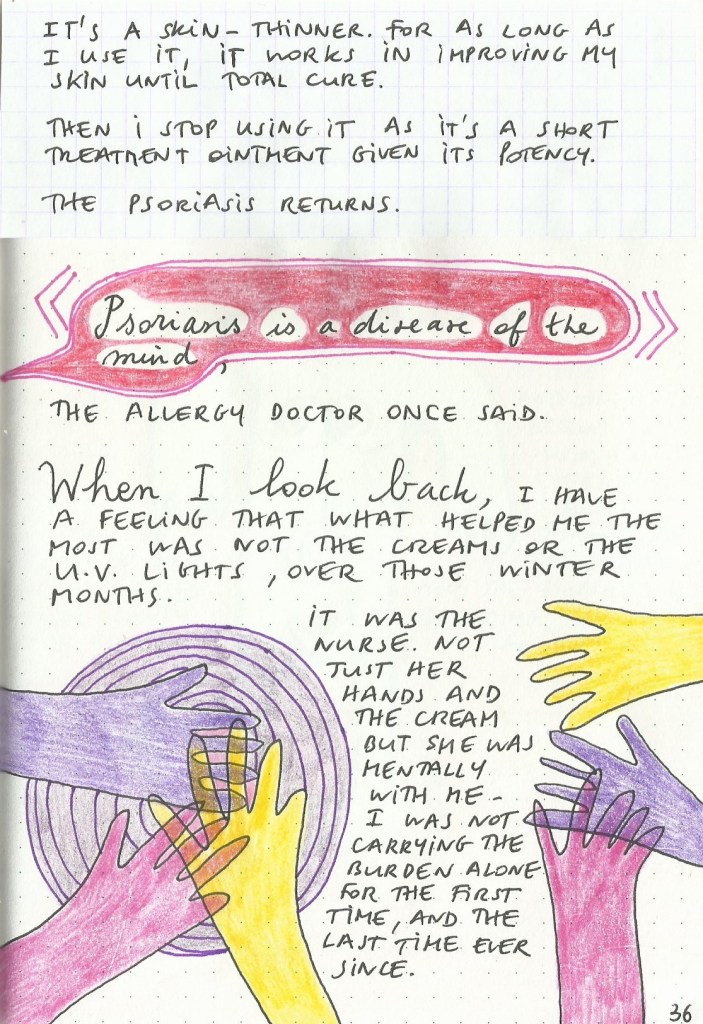 IT'S A SKIN-THINNER. FOR AS LONG AS
I USE IT, IT WORKS IN IMPROVING MY
SKIN UNTIL TOTAL CURE.
THEN I STOP USING IT AS IT'S A SHORT
TREATMENT OINTMENT GIVEN ITS POTENCY.
THE PSORIASIS RETURNS.
« Psoriasis is a disease of the »
mind,
THE ALLERGY DOCTOR ONCE SAID.
When I look back, I HAVE
A FEELING THAT WHAT HELPED ME THE
MOST WAS NOT THE CREAMS OR THE
U.V. LIGHTS, OVER THOSE WINTER
MONTHS.
IT WAS THE
NURSE. NOT
JUST HER
HANDS AND
THE CREAM
BUT SHE WAS
MENTALLY
WITH ME -
I WAS NOT
CARRYING THE
BURDEN ALONE
FOR THE FIRST
TIME, AND THE
LAST TIME EVER
SINCE.
36